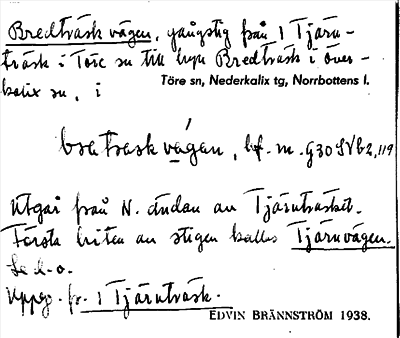 Bredträsk vägen, gångstig från 1 Tjärn-
träsk i Töre sn till byn Bredträsk i Över-
kalix sn, i
Töre sn, Nederkalix tg, Norrbottens l.
bratraskvágan, bf. m.
Utgår från N. ändan av Tjärnträsket.
Första biten av stigen kallas Tjärnvägen.
Se d.o.
Uppg. fr. 1 Tjärnträsk.
EDVIN BRÄNNSTRÖM 1938.